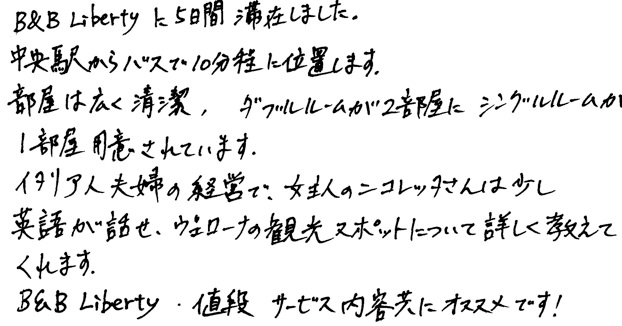 B&B Liberty に5日間 滞在しました。
中央駅からバスで10分程に位置します。
部屋は広く清潔, ダブルルームが2部屋に シングルルームが
1部屋用意されています。
イタリア人夫婦の経営で、女主人のニコレッタさんは少し
英語が話せ、ヴェローナの観光スポットについて詳しく教えて
くれます。
B&B Liberty . 値段 サービス内容共にオススメです!